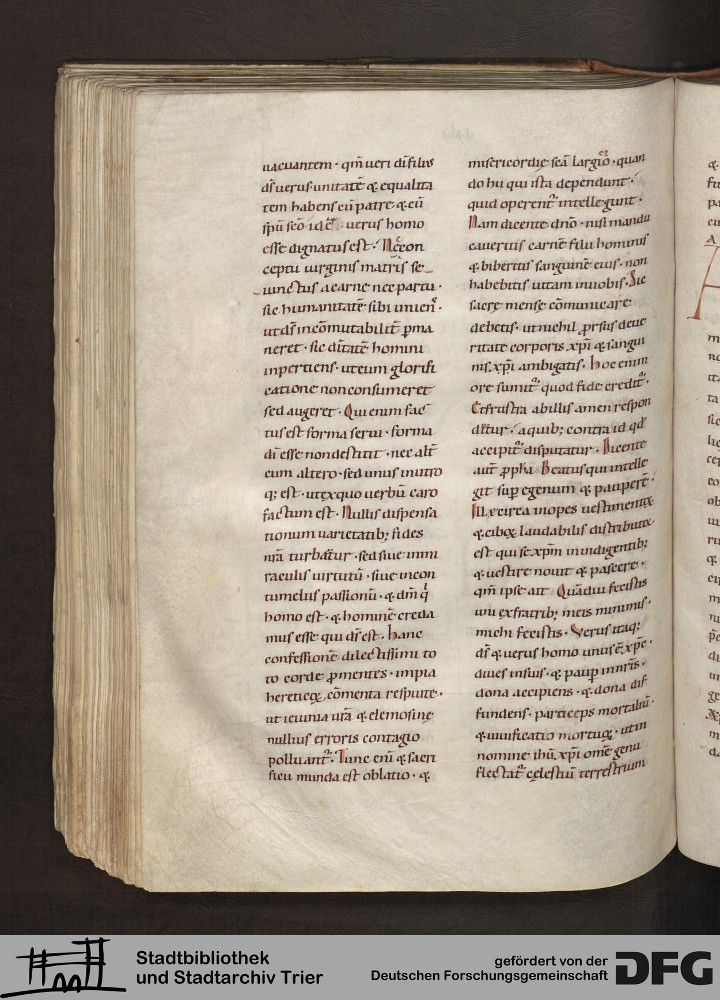 uacuantem · qm̄ ueri dī filius
dī uerus unitatē & equalita
tem habens cū patre & cū
sp̄u sc̄o · uerus homo
esse dignatus est · Nec con
ceptu uirginis matris se
iunctus a carne nec partu ·
sic humanitatē sibi uniens ·
ut dī incōmutabilit̄ pma
neret · sic diitatē homini
inpertiens · ut eum glorifi
catione non consumeret
sed augeret · Qui enim fac
tus est forma serui · forma
dī esse non destitit · nec alt̄
cum altero · sed unus in utro
q; est · ut ex quo uerbū caro
factum est · Nullis dispensa
tionum uarietatib; fides
nrā turbatur · sed siue in mi
raculis uirtutū · siue in con
tumeliis passionū · & dm̄ q̄
homo est · & hominē creda
mus esse qui ds̄ est · Hanc
confessionē dilectissimi to
to corde pmentes · impia
hereticoꝝ cōmenta respuite ·
ut ieiunia urā & elemosine
nullius erroris contagio
polluant̄ · Tunc enī & sacri
ficii munda est oblatio · &
misericordie sc̄a largitio · quan
do hii qui ista dependunt ·
quid operent̄ intellegunt ·
Nam dicente dn̄o · nisi mandu
caueritis carnē filii hominis
& biberitis sanguinē eius · non
habebitis uitam in uobis · Sic
sacre mense cōmunicare
debetis · ut nichil prsus de ue
ritate corporis xp̄i & sangui
nis xp̄i ambigatis · Hoc enim
ore sumit̄ quod fide credit̄ ·
Et frustra ab illis amen respon
detur · a quib; contra id qd̄
accipit̄ disputatur · Dicente
aut̄ ppha Beatus qui intelle
git sup egenum & pauperē ·
Ille circa inopes uestimentoꝝ
& ciboꝝ laudabilis distributor
est qui se xp̄m in indigentib;
& uestire nouit & pascere ·
qm̄ ipse ait Quādiu fecistis
uni ex fratrib; meis minimis ·
michi fecistis · Verus itaq;
ds̄ & uerus homo unus ē xp̄c ·
diues in suis · & paup in nrīs ·
dona accipiens · & dona dif
fundens · particeps mortaliū ·
& uiuificatio mortuoꝝ · ut in
nomine ih̄u xp̄i omē genu
flectat̄ celestiū terrestrium
Stadtbibliothek
und Stadtarchiv Trier
gefördert von der
Deutschen Forschungsgemeinschaft
DFG